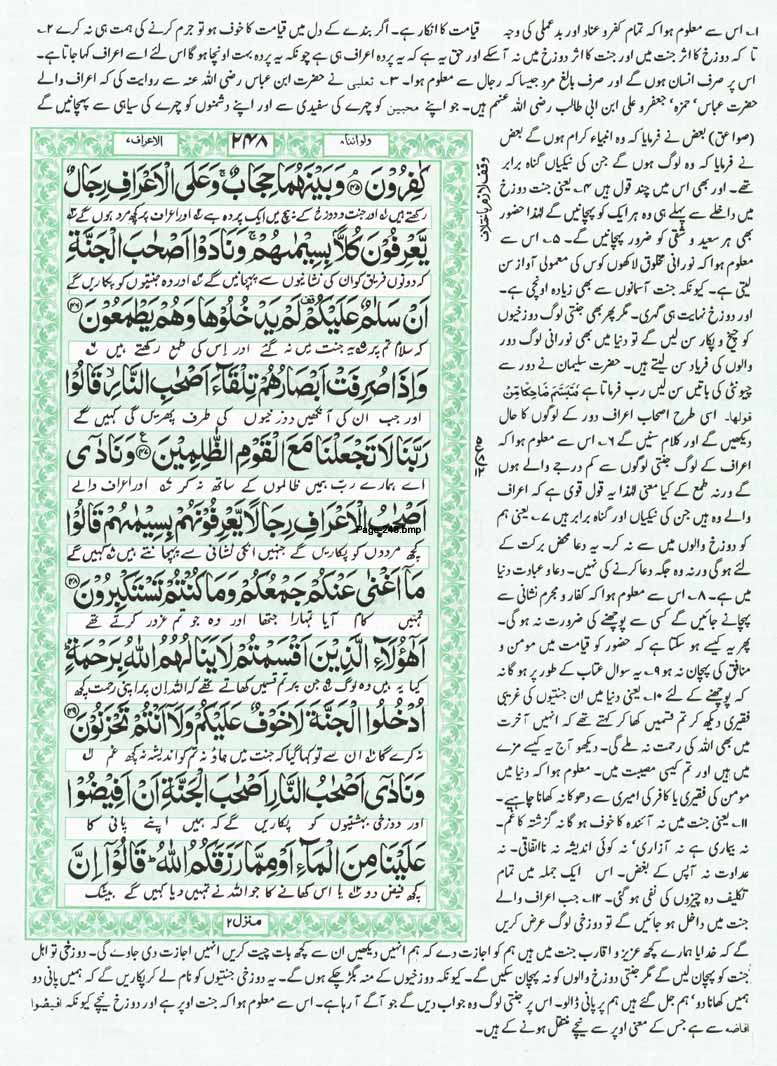 ۱۔ اس سے معلوم ہوا کہ تمام کفر و عناد اور بد عملی کی وجہ قیامت کا انکار ہے۔ اگر بندے کے دل میں قیامت کا خوف ہو تو جرم کرنے کی ہمت ہی نہ کرے ۲۔
تا کہ دوزخ کا اثر جنت میں اور جنت کا اثر دوزخ میں نہ آسکے اور حق یہ ہے کہ یہ پردہ اعراف ہی ہے چونکہ یہ پردہ بہت اونچا ہو گا اس لئے اسے اعراف کہا جاتا ہے۔
اس پر صرف انسان ہوں گے اور صرف بالغ مرد جیسا کہ رجال سے معلوم ہوا۔ ۳۔ ثعلبی نے حضرت ابن عباس رضی اللہ عنہ سے روایت کی کہ اعراف والے
حضرت عباس' حمزہ' جعفر و علی ابن ابی طالب رضی اللہ عنہم ہیں۔ جو اپنے محبین کو چہرے کی سفیدی سے اور اپنے دشمنوں کو چہرے کی سیاہی سے پہچانیں گے
(صواعق) بعض نے فرمایا کہ وہ انبیاء کرام ہوں گے بعض
نے فرمایا کہ وہ لوگ ہوں گے جن کی نیکیاں گناہ برابر
تھے۔ اور بھی اس میں چند قول ہیں ۴۔ یعنی جنت دوزخ
میں داخلے سے پہلے ہی وہ ہر ایک کو پہچانیں گے لہٰذا حضور
بھی ہر سعید و شقی کو ضرور پہچانیں گے۔ ۵۔ اس سے
معلوم ہوا کہ نورانی مخلوق لاکھوں کوس کی معمولی آواز سن
لیتی ہے۔ کیونکہ جنت آسمانوں سے بھی زیادہ اونچی ہے۔
اور دوزخ نہایت ہی گہری۔ مگر پھر بھی جنتی لوگ دوزخیوں
کو چیخ و پکار سن لیں گے تو دنیا میں بھی نورانی لوگ دور
والوں کی فریاد سن لیتے ہیں۔ حضرت سلیمان نے دور سے
چیونٹی کی باتیں سن لیں رب فرماتا ہے فَتَبَسَّمَ ضَاحِكًا مِّنْ
قولها۔ اسی طرح اصحاب اعراف دور کے لوگوں کا حال
دیکھیں گے اور کلام سنیں گے ۶۔ اس سے معلوم ہوا کہ
اعراف کے لوگ جنتی لوگوں سے کم درجے والے ہوں
گے ورنہ طمع کے کیا معنی لہٰذا یہ قول قوی ہے کہ اعراف
والے وہ ہیں جن کی نیکیاں اور گناہ برابر ہیں ۷۔ یعنی ہم
کو دوزخ والوں میں سے نہ کر۔ یہ دعا محض برکت کے
لئے ہو گی ورنہ وہ جگہ دعا کرنے کی نہیں۔ دعا و عبادت دنیا
میں ہے۔ ۸۔ اس سے معلوم ہوا کہ کفار و مجرم نشانی سے
پہچانے جائیں گے کسی سے پوچھنے کی ضرورت نہ ہو گی۔
پھر یہ کیسے ہو سکتا ہے کہ حضور کو قیامت میں مومن و
منافق کی پہچان نہ ہو ۹۔ یہ سوال عتاب کے طور پر ہو گا نہ
کہ پوچھنے کے لئے ۱۰۔ یعنی دنیا میں ان جنتیوں کی غریبی
فقیری دیکھ کر تم قسمیں کھا کر کہتے تھے کہ انہیں آخرت
میں بھی اللہ کی رحمت نہ ملے گی۔ دیکھو آج یہ کیسے مزے
میں ہیں اور تم کیسی مصیبت میں۔ معلوم ہوا کہ دنیا میں
مومن کی فقیری یا کافر کی امیری سے دھوکا نہ کھانا چاہیے۔
۱۱۔ یعنی جنت میں نہ آئندہ کا خوف ہو گا نہ گزشتہ کا غم۔
نہ بیماری ہے نہ آزاری' نہ کوئی اندیشہ نہ ناتفاقی۔ نہ
عداوت نہ آپس کے بغض۔ اس ایک جملہ میں تمام
تکلیف دہ چیزوں کی نفی ہو گئی۔ ۱۲۔ جب اعراف والے
جنت میں داخل ہو جائیں گے تو دوزخی لوگ عرض کریں
وقف لازم باختلاف
الاعراف ۷
۲۴۸
ولواننا ۸
كٰفِرُوْنَ ۝۴۵ وَ بَيْنَهُمَا حِجَابٌ ۚ وَ عَلَى الْاَعْرَافِ رِجَالٌ
رکھتے ہیں اور جنت و دوزخ کے بیچ میں ایک پردہ ہے اور اعراف پر کچھ مرد ہوں گے
يَّعْرِفُوْنَ كُلًّۢا بِسِيْمٰىهُمْ ۚ وَ نَادَوْا اَصْحٰبَ الْجَنَّةِ
کہ دونوں فریق کو ان کی نشانیوں سے پہچانیں گے اور وہ جنتیوں کو پکاریں گے
اَنْ سَلٰمٌ عَلَيْكُمْ ۫ لَمْ يَدْخُلُوْهَا وَ هُمْ يَطْمَعُوْنَ ۝۴۶
کہ سلام تم پر یہ جنت میں نہ گئے اور اس کی طمع رکھتے ہیں
وَ اِذَا صُرِفَتْ اَبْصَارُهُمْ تِلْقَآءَ اَصْحٰبِ النَّارِ ۙ قَالُوْا
اور جب ان کی آنکھیں دوزخیوں کی طرف پھریں گی کہیں گے
رَبَّنَا لَا تَجْعَلْنَا مَعَ الْقَوْمِ الظّٰلِمِيْنَ ۝۴۷ وَ نَادٰۤى
اے ہمارے رب ہمیں ظالموں کے ساتھ نہ کر اور اعراف والے
اَصْحٰبُ الْاَعْرَافِ رِجَالًا يَّعْرِفُوْنَهُمْ بِسِيْمٰىهُمْ قَالُوْا
Page-248.bmp
کچھ مردوں کو پکاریں گے جنہیں انکی نشانی سے پہچانتے ہیں کہیں گے
مَاۤ اَغْنٰى عَنْكُمْ جَمْعُكُمْ وَ مَا كُنْتُمْ تَسْتَكْبِرُوْنَ ۝۴۸
تمہیں کیا کام آیا تمہارا جتھا اور وہ جو تم غرور کرتے تھے
اَهٰۤؤُلَآءِ الَّذِيْنَ اَقْسَمْتُمْ لَا يَنَالُهُمُ اللّٰهُ بِرَحْمَةٍ ؕ
کیا یہ ہیں وہ لوگ جن پر تم قسمیں کھاتے تھے کہ اللہ ان پر اپنی رحمت کچھ
اُدْخُلُوا الْجَنَّةَ لَا خَوْفٌ عَلَيْكُمْ وَ لَاۤ اَنْتُمْ تَحْزَنُوْنَ ۝۴۹
نہ کرے گا ان سے تو کہا گیا کہ جنت میں جاؤ نہ تم کو اندیشہ نہ کچھ غم
وَ نَادٰۤى اَصْحٰبُ النَّارِ اَصْحٰبَ الْجَنَّةِ اَنْ اَفِيْضُوْا
اور دوزخی بہشتیوں کو پکاریں گے کہ ہمیں اپنے پانی کا
عَلَيْنَا مِنَ الْمَآءِ اَوْ مِمَّا رَزَقَكُمُ اللّٰهُ ؕ قَالُوْۤا اِنَّ
کچھ فیض دو یا اس کھانے کا جو اللہ نے تمہیں دیا کہیں گے بیشک
منزل ۲
گے کہ خدایا ہمارے کچھ عزیز و اقارب جنت میں ہیں ہم کو اجازت دے کہ ہم انہیں دیکھیں ان سے کچھ بات چیت کریں انہیں اجازت دی جاوے گی۔ دوزخی تو اہل
جنت کو پہچان لیں گے مگر جنتی دوزخ والوں کو نہ پہچان سکیں گے۔ کیونکہ دوزخیوں کے منہ بگڑ چکے ہوں گے۔ یہ دوزخی جنتیوں کو نام لے کر پکاریں گے کہ ہمیں پانی دو
ہمیں کھانا دو' ہم جل گئے ہیں ہم پر پانی ڈالو۔ اس پر جنتی لوگ وہ جواب دیں گے جو آگے آ رہا ہے۔ اس سے معلوم ہوا کہ جنت اوپر ہے اور دوزخ نیچے کیونکہ افیضوا
افاضہ سے ہے جس کے معنی اوپر سے نیچے منتقل ہونے کے ہیں۔